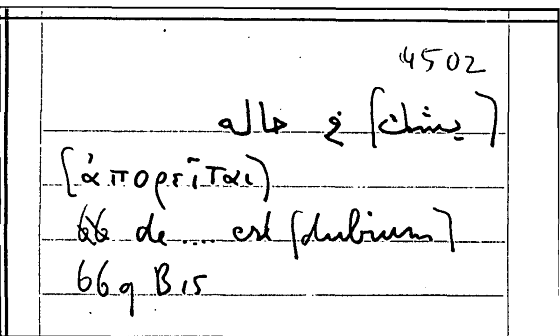 4502
[يشك] في حاله
(ἀπορεῖται)
66 de .... est [dubium]
66a B 15